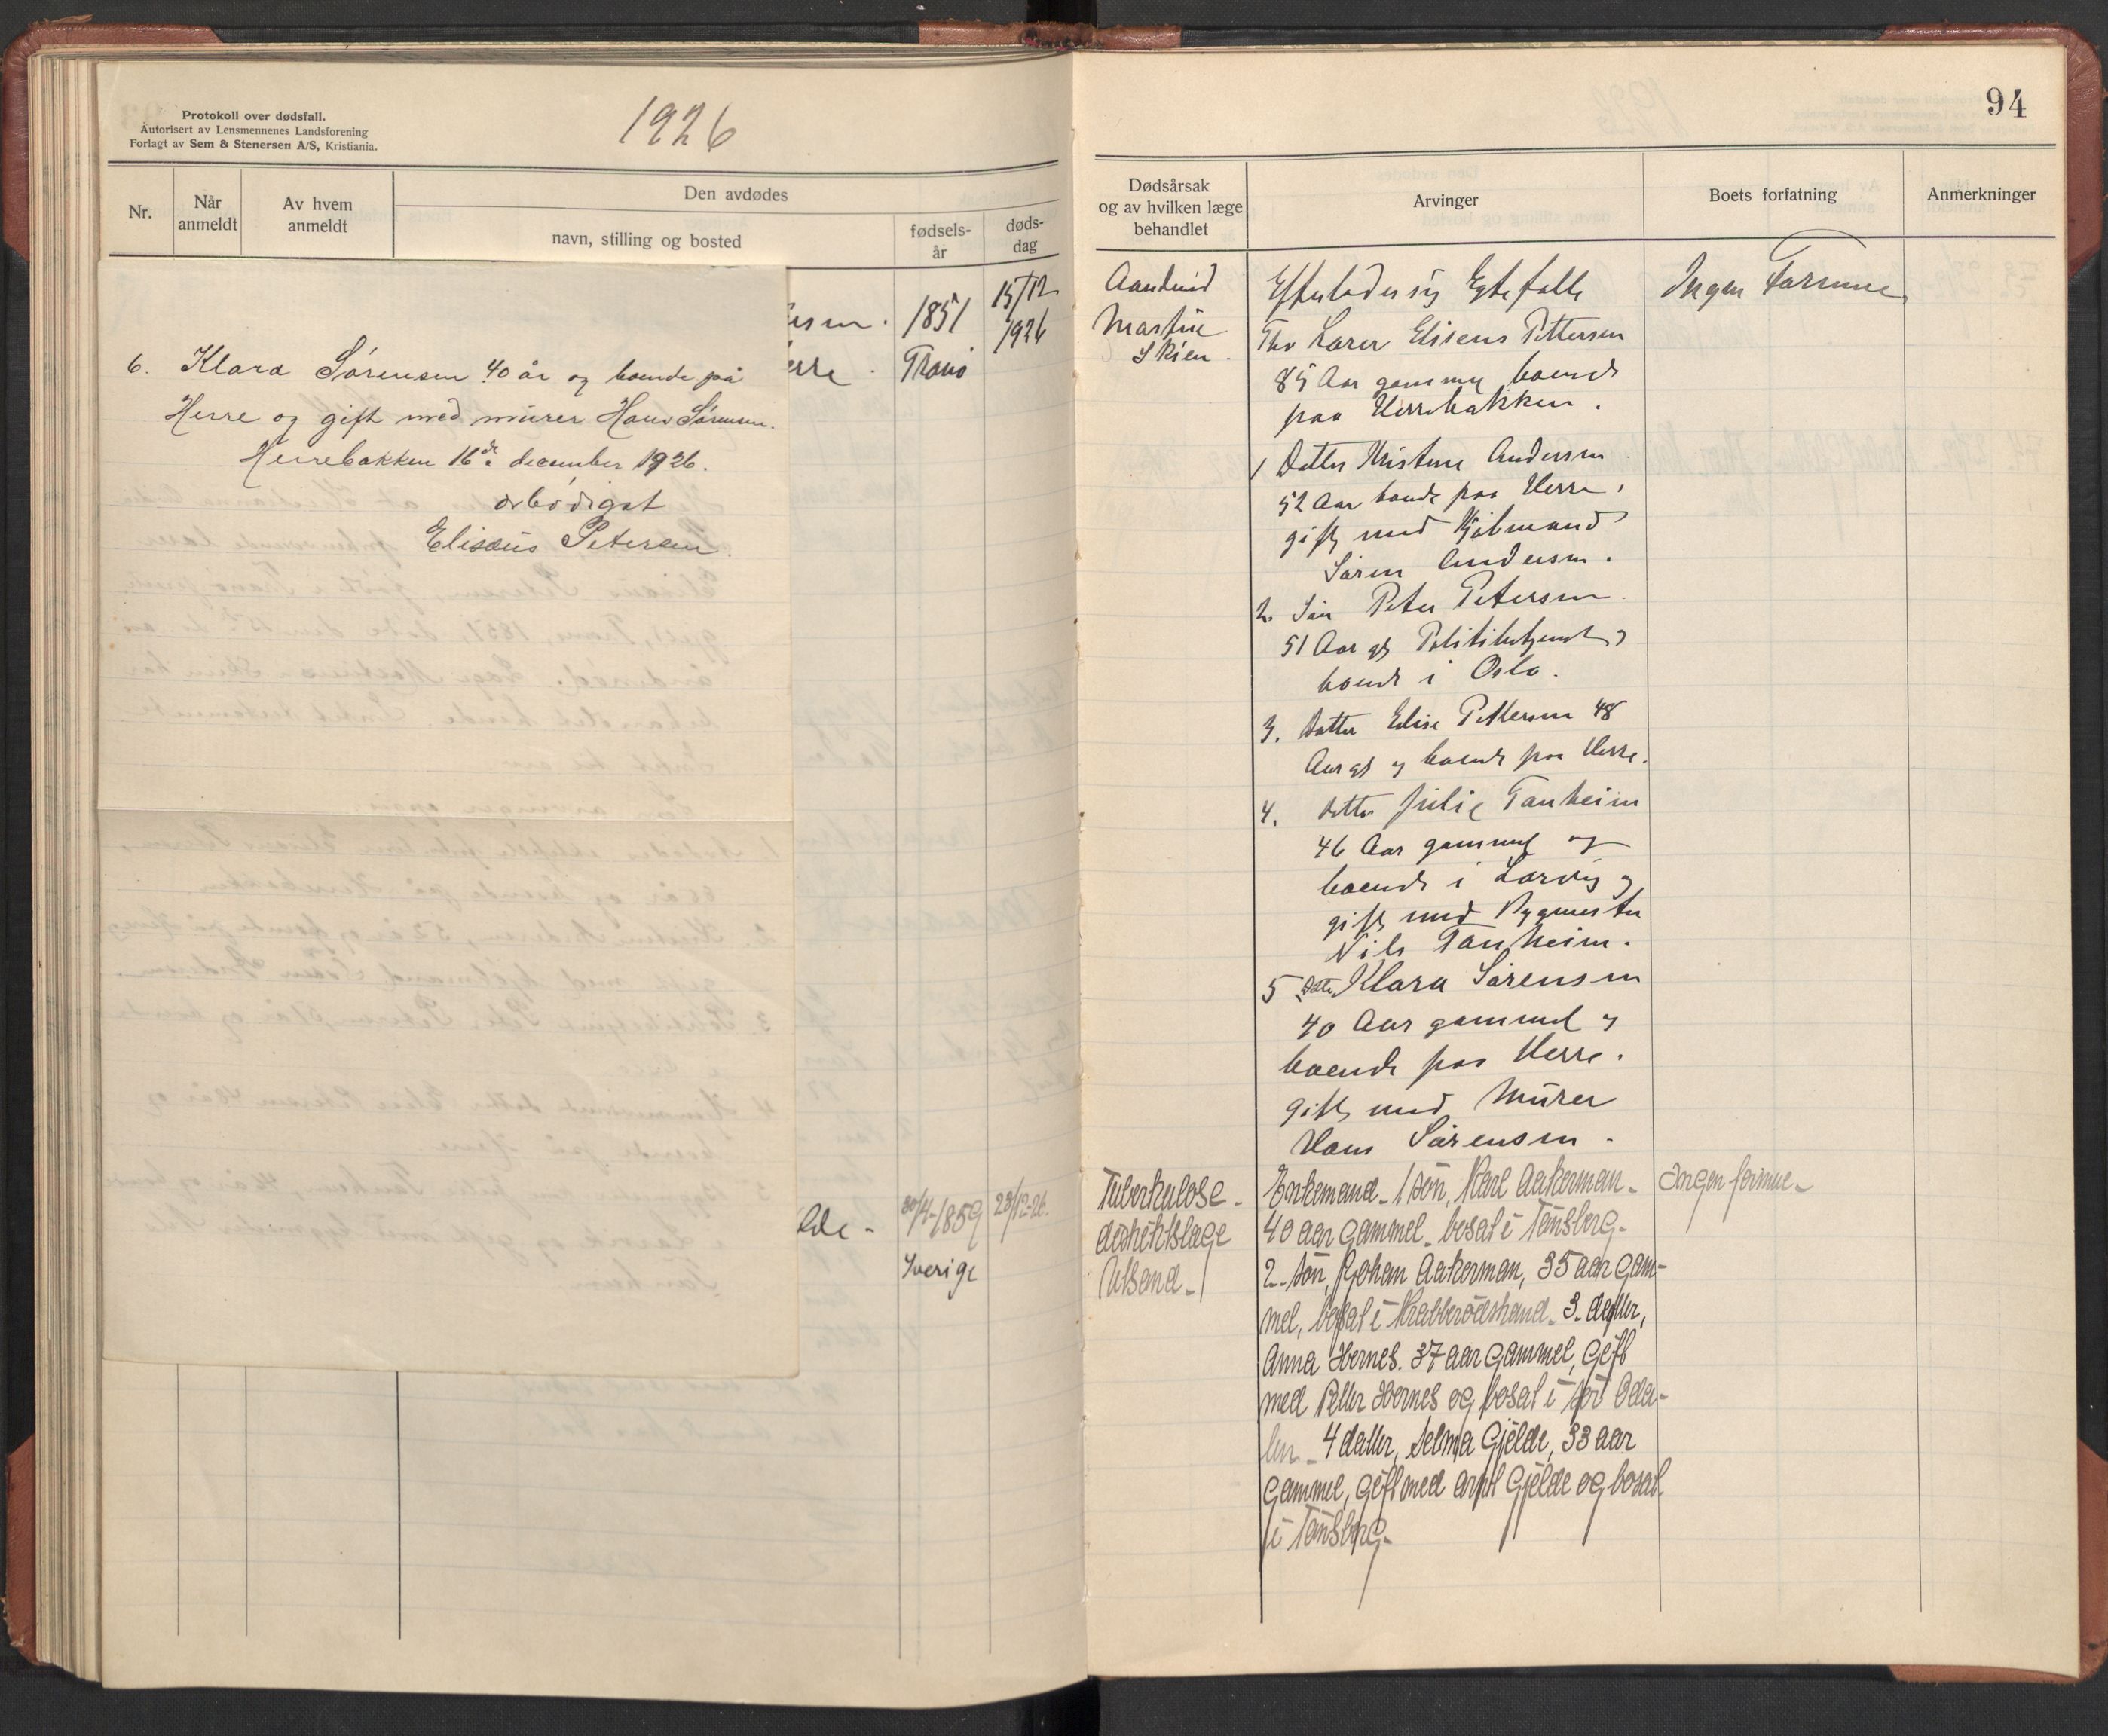 Protokoll over dødsfall.
Autorisert av Lensmennenes Landsforening
Forlagt av Sem & Stenersen A/S, Kristiania.
1926
Nr.
Når
anmeldt
Av hvem
anmeldt
Den avdødes
navn, stilling og bosted
fødsels-
år
døds-
dag
6. Klara Sørensen 40 år og boende på
Herre og gift med murer Hans Sørensen.
Herrebakken 16de december 1926.
ærbødigst
Elisæus Petersen.
1851
15/12
1926
Tranö
30/4-1859
23/12-26.
Sverige
94
Dødsårsak
og av hvilken læge
behandlet
Arvinger
Boets forfatning
Anmerkninger
Aandenød
Martin
Skien.
Efterlader sig Egtefælle
Eliseus Pettersen
85 Aar gammel boende
paa Herrebakken.
1 Datter Kristine Andersen
52 Aar boende paa Herre,
gift med Kjølmand
Søren Andersen.
2. Søn Peter Petersen.
51 Aar gl Politibetjent og
boende i Oslo.
3. Datter Elise Pettersen 48
Aar gl og boende paa Herre.
4. Datter Julie Tanheim
46 Aar gammel og
boende i Larvig og
gift med Bygmester
Nils Tanheim.
5 Datter Klara Sørensen
40 Aar gammel og
boende paa Herre.
gift med Murer
Hans Sørensen.
Tuberkulose-
distriktslæge
Enkemand- 1 søn, Karl Aakerman-
40 aar gammel- bosat i Tønsberg-
2- søn, Johan Aakerman, 35 aar gam-
mel, bosat i Krabberødstrand- 3- datter,
Anna Hernes. 37 aar gammel, gift
med Petter Hernes og bosat i sør Oda-
len- 4 datter, Selma Gjelde, 33 aar
gammel, gift med Arnt Gjelde og bosat
i Tønsberg-
Ingen Formue
Ingen formue-